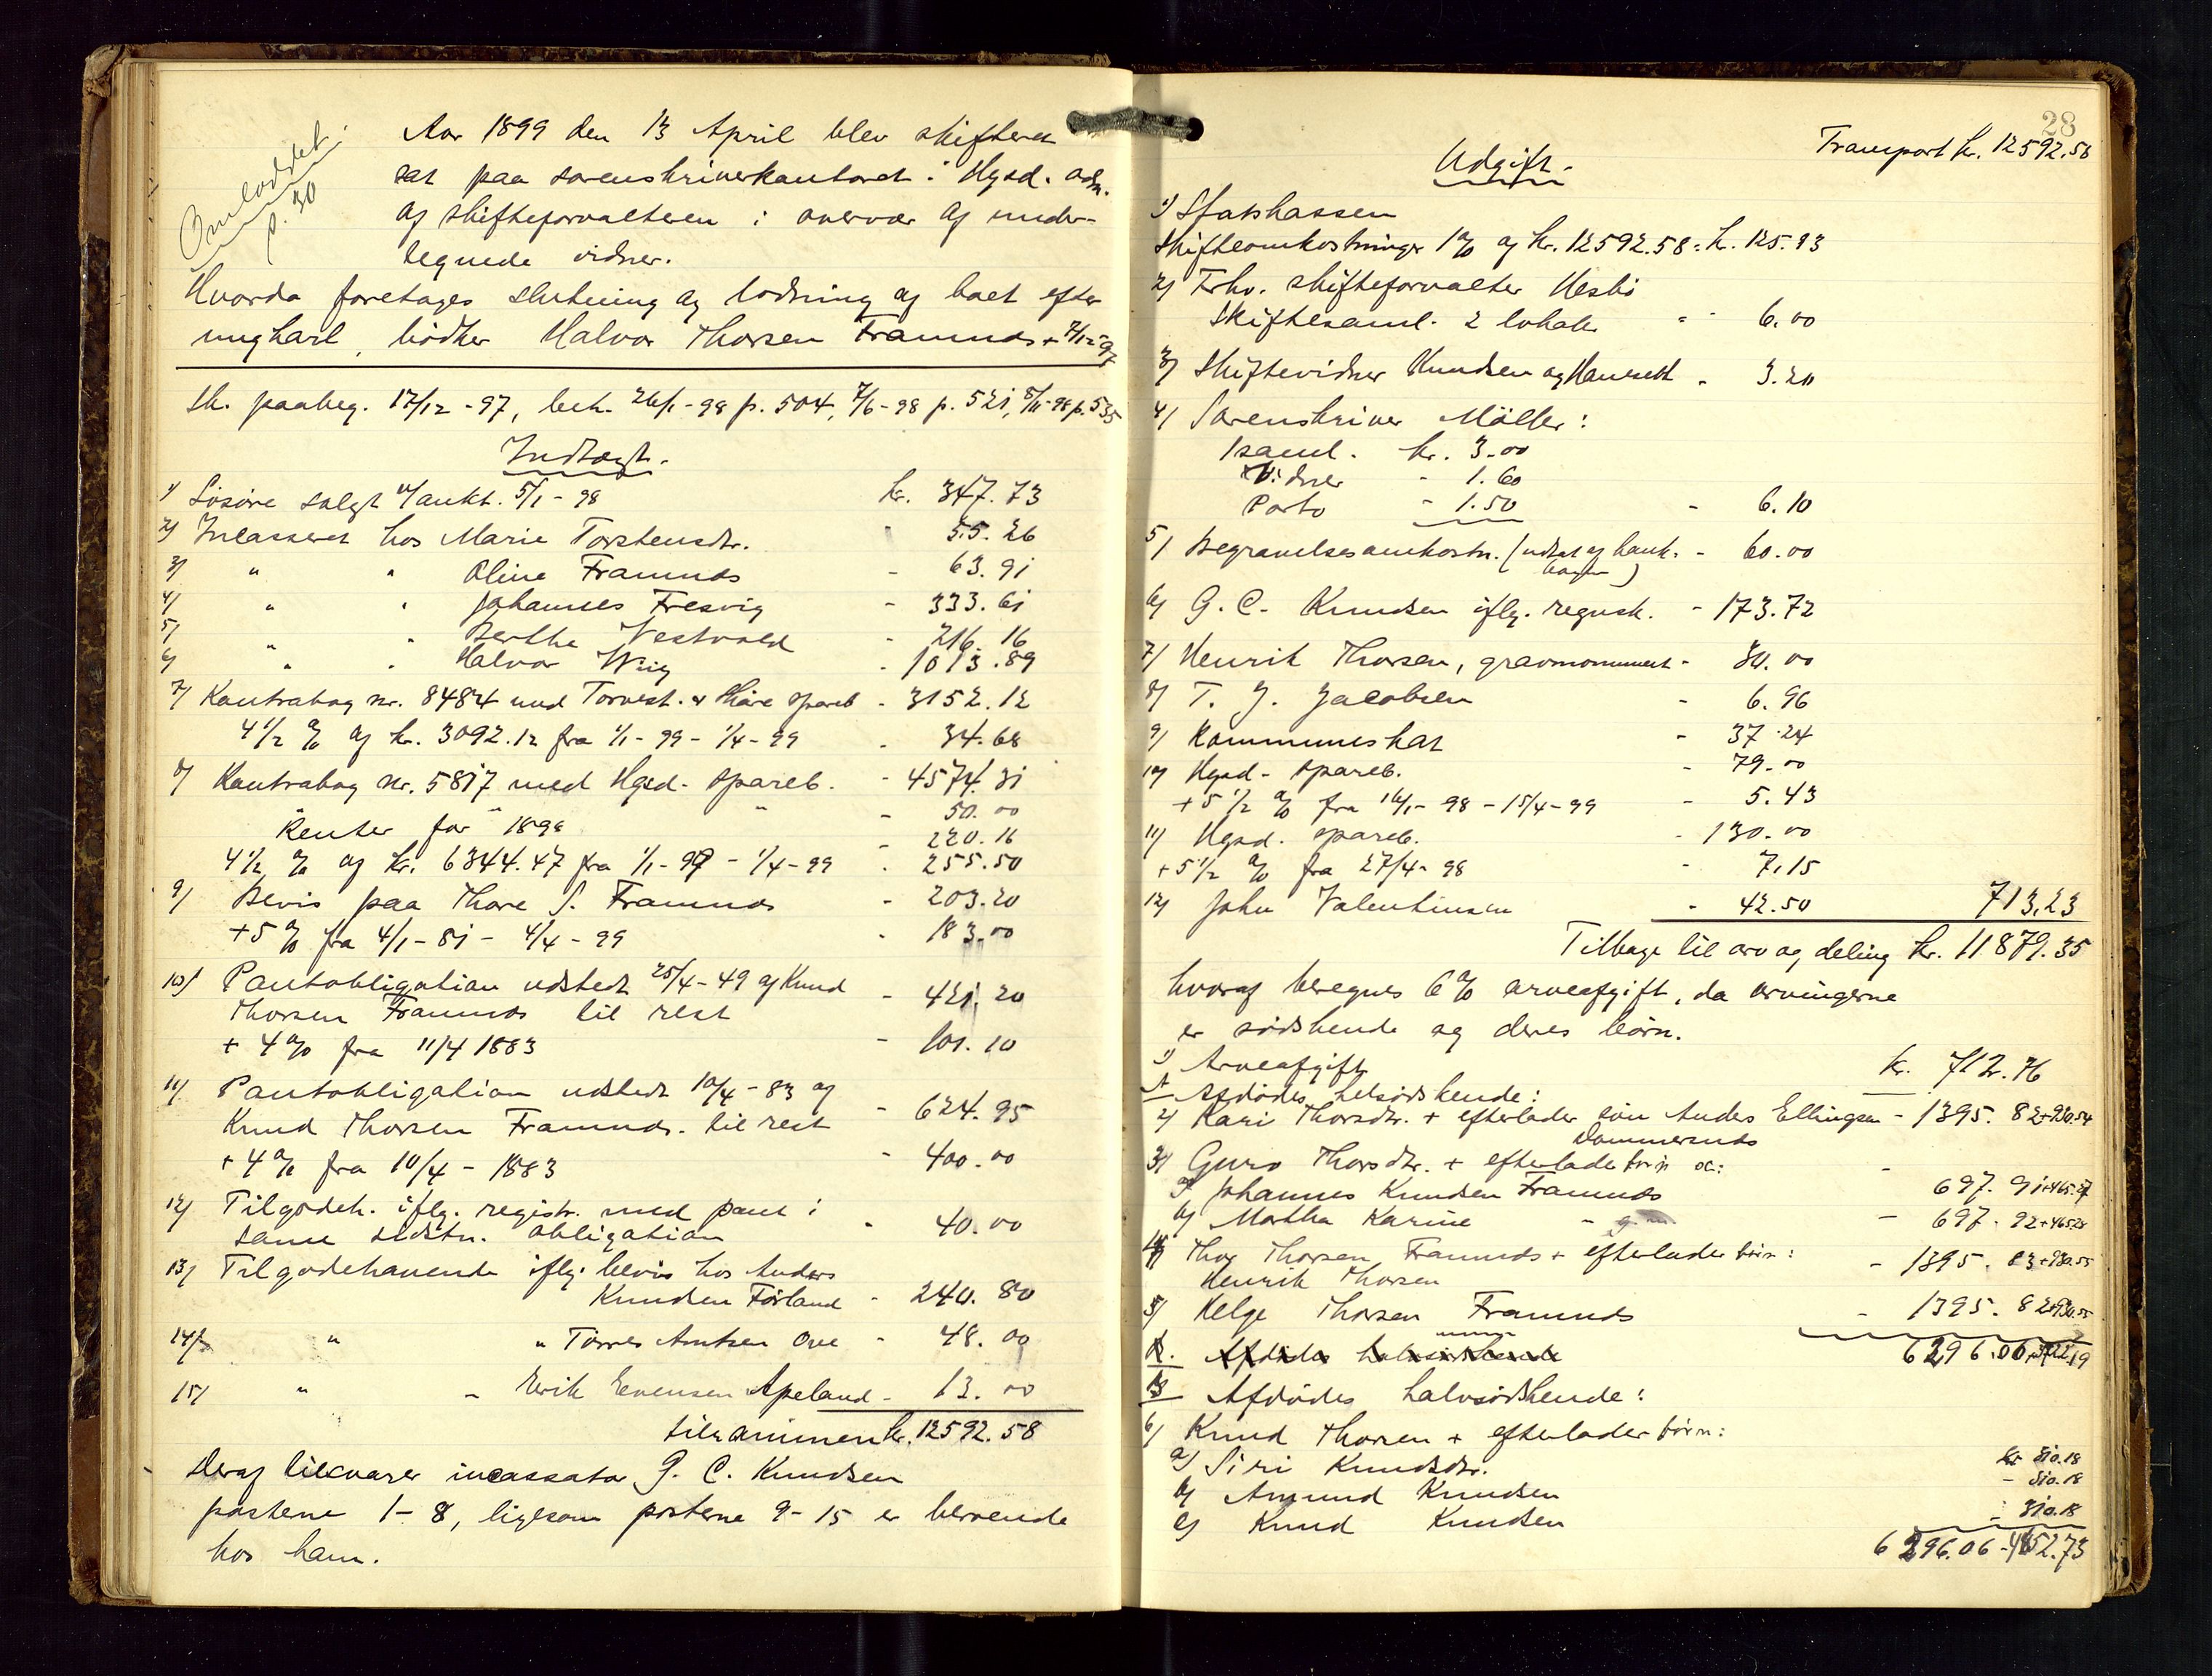 Omloddet
p. 30
Aar 1899 den 13 April blev skifteret
sat paa sorenskriverkontoret i Hgsd. adm.
af skifteforvalteren i overvær af under-
tegnede vidner.
Hvorda foretages slutning og lodning af boet efter
ungkarl, bødker Halvor Thorsen Framnæs + 7/12-97
Sk. paabeg. 17/12-97, beh. 26/1-98 p. 504, 7/6-98 p. 521, 8/11-98 p. 535
Indtægt.
1) Løsøre solgt v/aukt. 5/1-98 kr. 347.73
2) Incasseret hos Marie Torstensdtr. - 55.26
3) " " Oline Framnæs - 63.91
4) " " Johannes Fresvig - 333.61
5) " " Berthe Vestvold - 216.16
6) " " Halvor Wiig - 1013.89
7) Kontrabog nr. 8484 med Torvest. & Skåre spareb - 3152.12
4 1/2 % af kr. 3092.12 fra 1/1-99 - 1/4-99 - 34.68
8) Kontrabog nr. 5817 med Hgsd. spareb. - 4574.31
" " - 50.00
Renter for 1898 - 220.16
4 1/2 % af kr. 6344.47 fra 1/1-99 - 1/4-99 - 255.50
9) Bevis paa Thore S. Framnæs - 203.20
+5 % fra 4/1-81 - 4/4-99 - 183.00
10) Pantobligation udstedt 25/4-49 af Knud
Thorsen Framnæs til rest - 421.20
+ 4 % fra 11/4 1883 - 101.10
11) Pantobligation udstedt 10/4-83 af
Knud Thorsen Framnæs til rest - 624.95
+4 % fra 10/4-1883 - 400.00
12) Tilgodeh. iflg. registr. med pant i
samme sidstn. obligation - 40.00
13) Tilgodehavende iflg. bevis hos Anders
Knudsen Førland - 240.80
14) " " Tørres Arntsen Ove - 48.00
15) " - Erik Evensen Apeland - 13.00
tilsammen kr. 12592.58
Deraf tilsvarer incassator G. C. Knudsen
posterne 1-8, ligesom posterne 9-15 er beroende
hos ham.
28
Transport kr. 12592.58
Udgift.
1) Statskassen
Skifteomkostninger 1 % af kr. 12592.58 = kr. 125.93
2) Frhv. skifteforvalter Hesbø
Skiftesaml. 2 lokale - - 6.00
3) Skiftevidner Knudsen og - 3.20
4) Sorenskriver Møller:
1 saml. kr. 3.00
Vidner - 1.60
Porto - 1.50 - 6.10
5) Begravelsesomkostn. (udtat af bank-
bogen) - 60.00
6) G. C. Knudsen iflg. regnsk. - 173.72
7) Henrik Thorsen, gravmonument - 30.00
8) T. J. Jacobsen - 6.96
9) Kommuneskat - 37.24
10) Hgsd. spareb. - 79.00
+5 1/2 % fra 16/1-98 - 15/4-99 - 5.43
11) Hgsd. spareb. - 130.00
+5 1/2 % fra 27/4-98 - 7.15
12) John Valentinsen - 42.50 713.23
Tilbage til arv og deling kr. 11879.35
hvoraf beregnes 6 % arveafgift, da arvingerne
er sødskende og deres børn.
1) Arveafgift kr. 712.76
A Afdødes helsødskende:
2) Kari Thorsdtr. + efterlader søn Anders Ellingsen - 1395.82+930.54
Dommersnæs
3) Guro Thorsdtr. + efterlader børn o:
a) Johannes Knudsen Framnæs 697.91+465.27
b) Martha Karine - - 697.92+465.28
4) Thor Thorsen Framnæs + efterlader børn:
Henrik Thorsen - 1395.83+930.55
5) Helge Thorsen Framnæs - 1395.82+930.55
6296.06
B. Afdødes halvsødskende
B Afdødes halvsødskende:
6) Knud Thorsen + efterlader børn:
a) Siri Knudsdtr. kr 310.18
b) Amund Knudsen - 310.18
c) Knud Knudsen - 310.18
6296.06